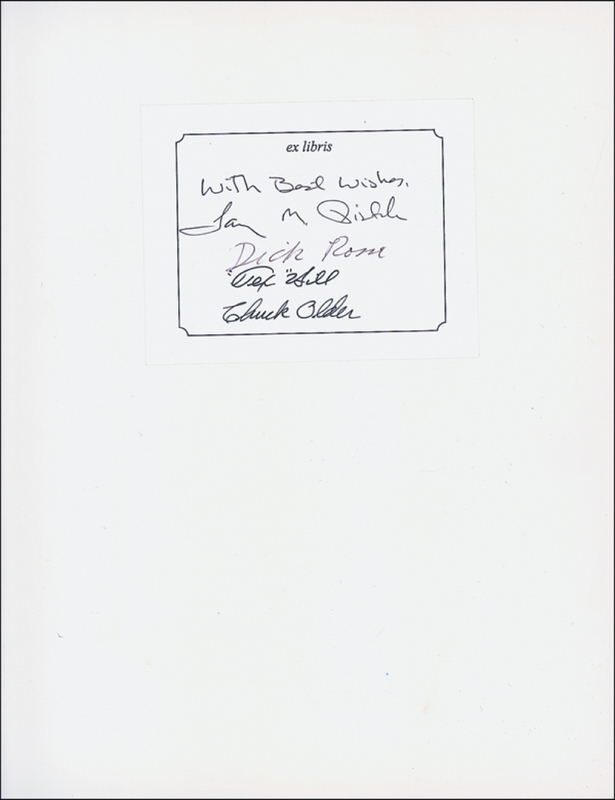 ex libris
With Best Wishes,
M.
Dick Rossi
"Tex" Hill
Chuck Older